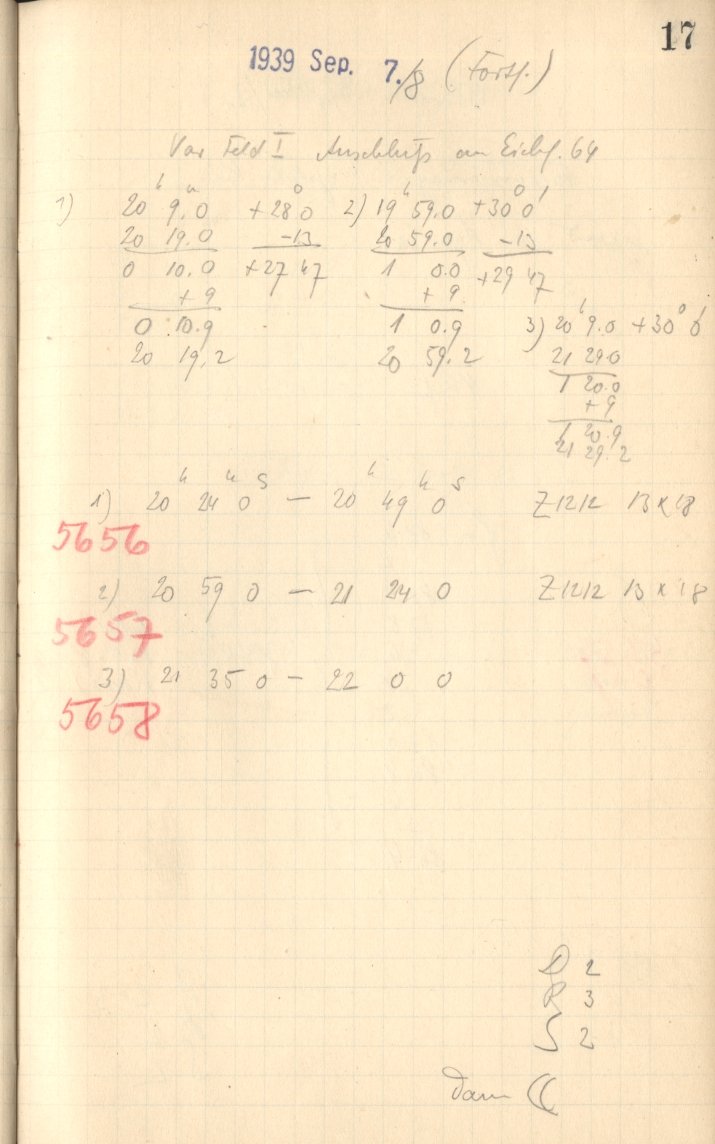 17
1939 Sep. 7./8 (Forts.)
Var Feld I Anschluß an Eichf. 64
1) 20h 9.0 +28° 0
20 19.0 -13
0 10.0 +27 47
+ 9
0 10.9
20 19.2
2) 19h 59.0 +30° 0'
20 59.0 -13
1 0.0 +29 47
+ 9
1 0.9
20 59.2
3) 20h 9.0 +30° 0'
21 29.0
1 20.0
+ 9
1 20.9
21 29.2
1) 20h 24m 0s — 20h 49m 0s Z1212 13 x 18
5656
2) 20 59 0 — 21 24 0 Z1212 13 x 18
5657
3) 21 35 0 — 22 0 0
5658
D 2
R 3
S 2
Dann ((